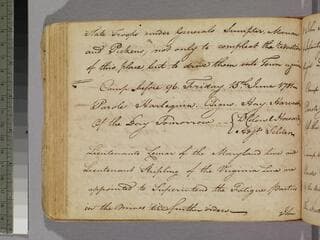 State Troops under Generals Sumpter, Marion
and Pickens, not only to compleat the
of this place, but to
Camp before 96 Friday 15th June 1781
Parole Harlequin. Csigns. Hay, Harrow
Of the Day Tomorrow { Lt Colonel Howard
Lieutenants Lamar of the Maryland line and
Lieutenant Shipling of the Virginia Line are
appointed to Superintend the Fatigue Parties
in the Mines 'till further orders